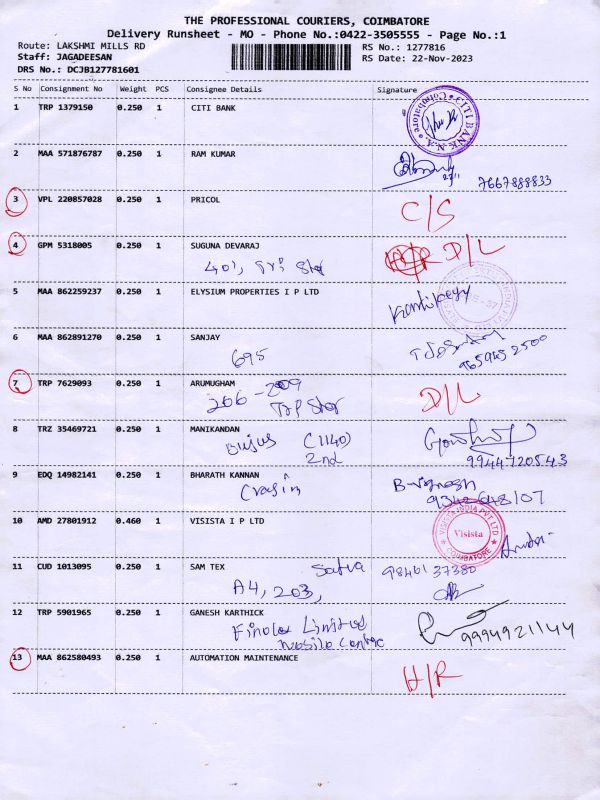 THE PROFESSIONAL COURIERS, COIMBATORE
Delivery Runsheet - MO - Phone No.:0422-3505555 - Page No.:1
Route: LAKSHMI MILLS RD RS No.: 1277816
Staff: JAGADEESAN RS Date: 22-Nov-2023
DRS No.: DCJB127781601
S No Consignment No Weight PCS Consignee Details Signature
1 TRP 1379150 0.250 1 CITI BANK
CITI BANK N.A. Coimbatore
2 MAA 571876787 0.250 1 RAM KUMAR
7667888833
3 VPL 220857028 0.250 1 PRICOL C/S
4 GPM 5318005 0.250 1 SUGUNA DEVARAJ D/L
401,
5 MAA 862259237 0.250 1 ELYSIUM PROPERTIES I P LTD
6 MAA 862891270 0.250 1 SANJAY
695
7 TRP 7629093 0.250 1 ARUMUGHAM D/L
206-209
8 TRZ 35469721 0.250 1 MANIKANDAN
(1140)
2nd 9944720543
9 EDQ 14982141 0.250 1 BHARATH KANNAN B-Vignesh
10 AMD 27801912 0.460 1 VISISTA I P LTD
VISISTA INDIA PVT LTD
Visista
COIMBATORE
11 CUD 1013095 0.250 1 SAM TEX
A4, 203,
12 TRP 5901965 0.250 1 GANESH KARTHICK
Limited 9994921144
13 MAA 862580493 0.250 1 AUTOMATION MAINTENANCE H/R